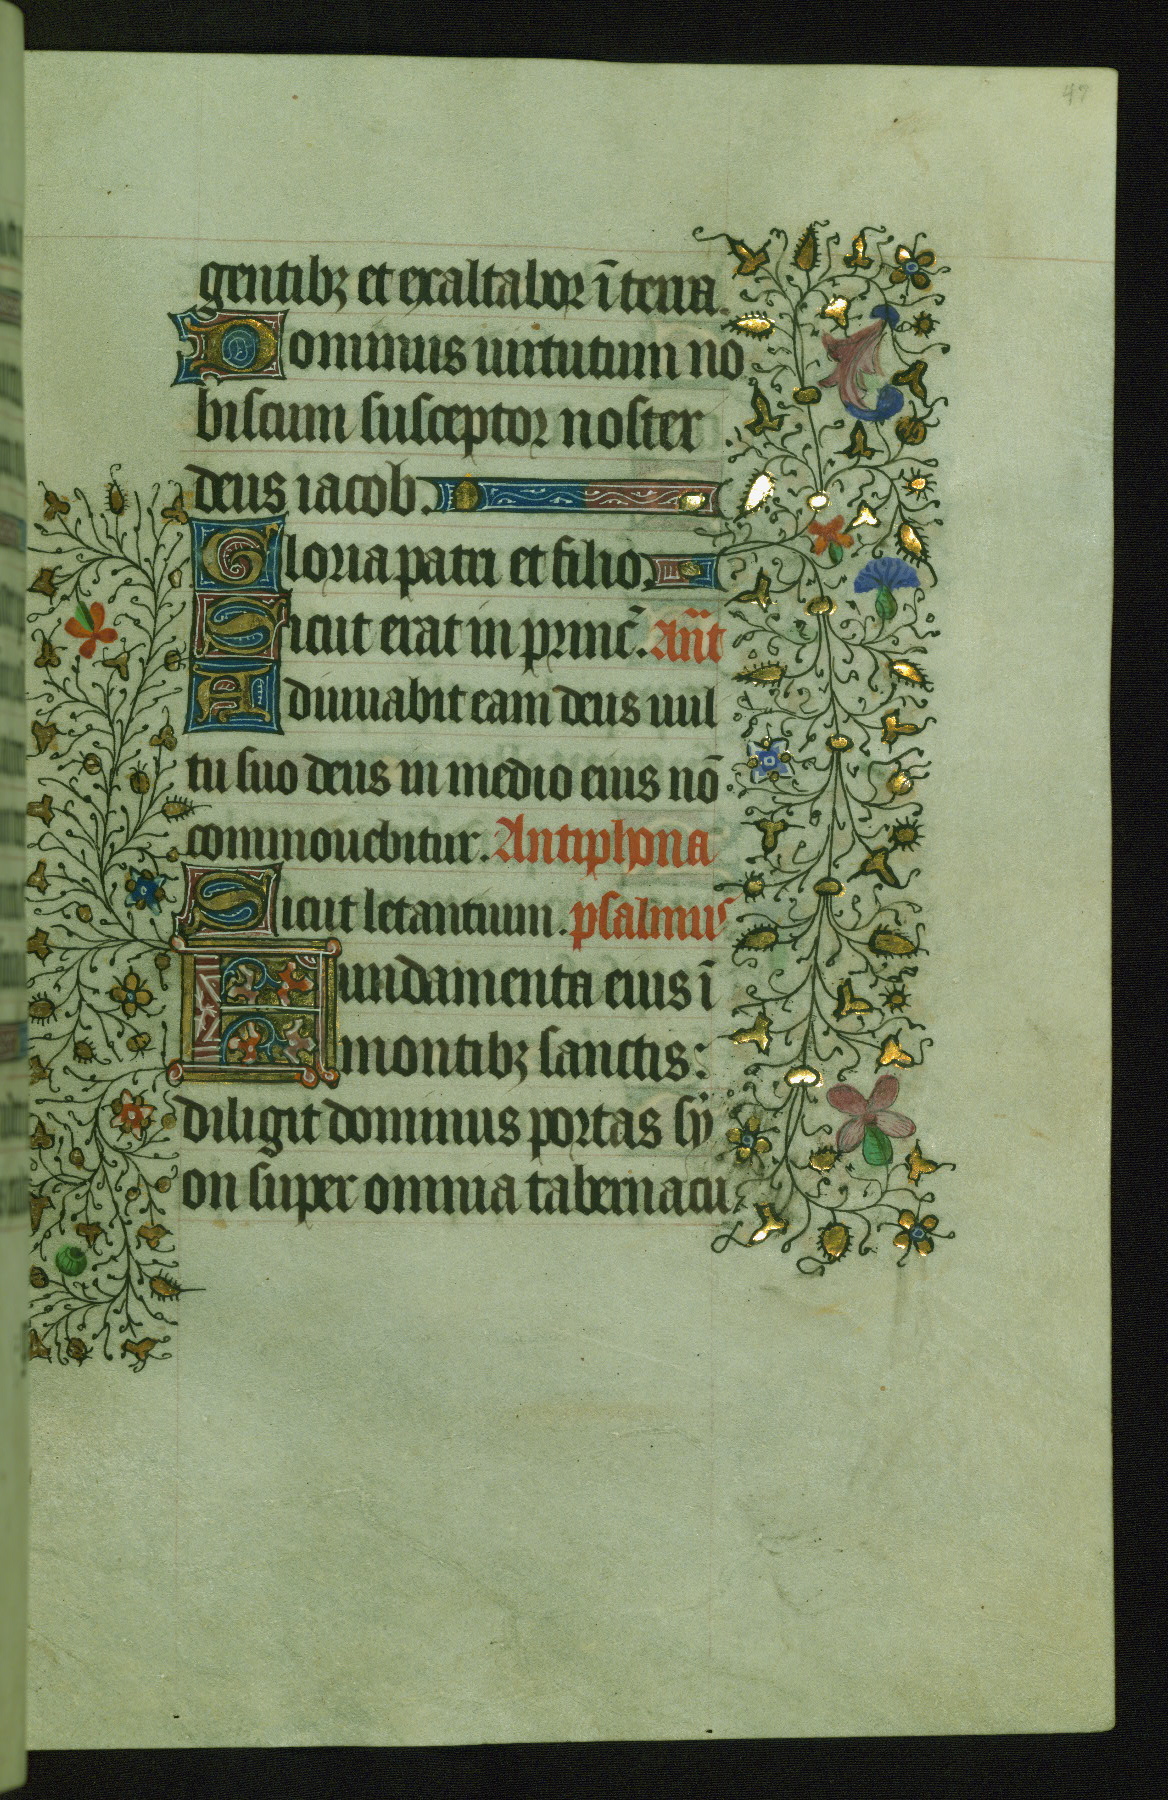 47
gentibꝫ et exaltabor ī terra.
Dominus uirtutum no
biscum susceptor noster
deus iacob.
Gloria patri et filio.
Sicut erat in princ̄. Ant̄
Adiuuabit eam deus uul
tu suo deus in medio eius nō
commouebitur. Antiphona
Sicut letantium. psalmus
Fundamenta eius ī
montibꝫ sanctis:
diligit dominus portas sẏ
on super omnia tabernacu